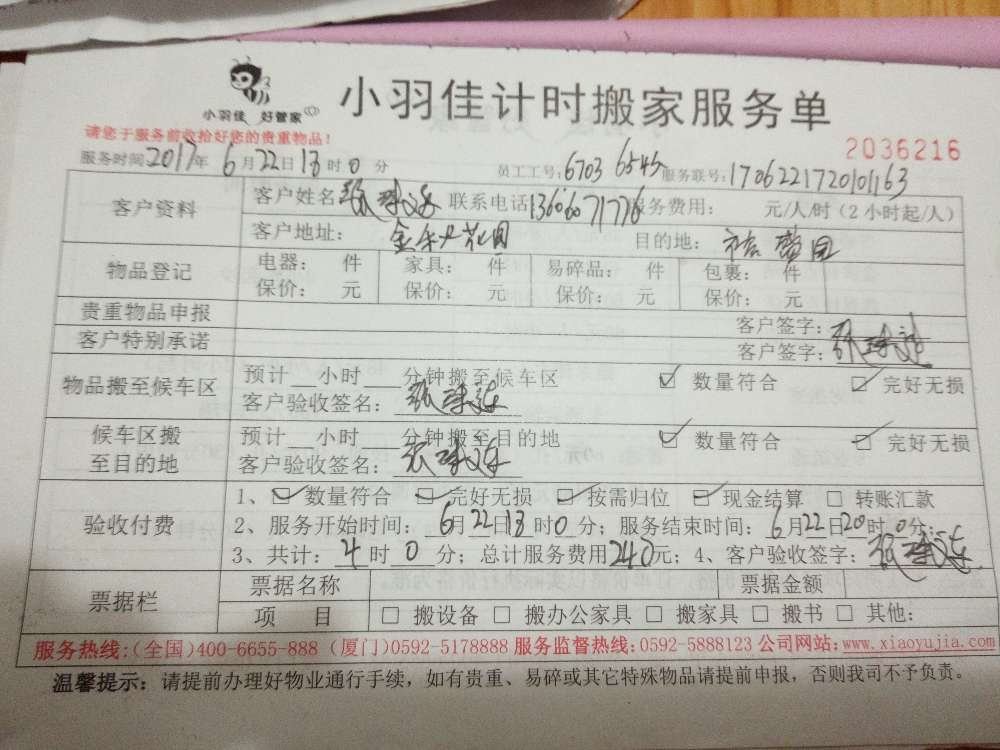 小羽佳 好管家
小羽佳计时搬家服务单
请您于服务前收拾好您的贵重物品!
2036216
服务时间2017年6月22日18时0分 员工工号:6703 6545 服务联号:1706221720101163
客户资料 客户姓名 联系电话13606071776 服务费用: 元/人/时(2小时起/人)
客户地址: 花园 目的地:
物品登记 电器: 件 家具: 件 易碎品: 件 包裹: 件
保价: 元 保价: 元 保价: 元 保价: 元
贵重物品申报 客户签字:
客户特别承诺 客户签字:
物品搬至候车区 预计__小时___分钟搬至候车区 ☑ 数量符合 ☑ 完好无损
客户验收签名:
候车区搬至目的地 预计__小时___分钟搬至目的地 ☑ 数量符合 ☑ 完好无损
客户验收签名:
验收付费 1、☑ 数量符合 ☑ 完好无损 ☑ 按需归位 ☑ 现金结算 □ 转账汇款
2、服务开始时间:6月22日18时0分;服务结束时间:6月22日20时0分;
3、共计:4时0分;总计服务费用240元;4、客户验收签字:
票据栏 票据名称 票据金额
项 目 □ 搬设备 □ 搬办公家具 □ 搬家具 □ 搬书 □ 其他:
服务热线:(全国)400-6655-888 (厦门)0592-5178888 服务监督热线:0592-5888123 公司网站:www.xiaoyujia.com
温馨提示:请提前办理好物业通行手续,如有贵重、易碎或其它特殊物品请提前申报,否则我司不予负责。